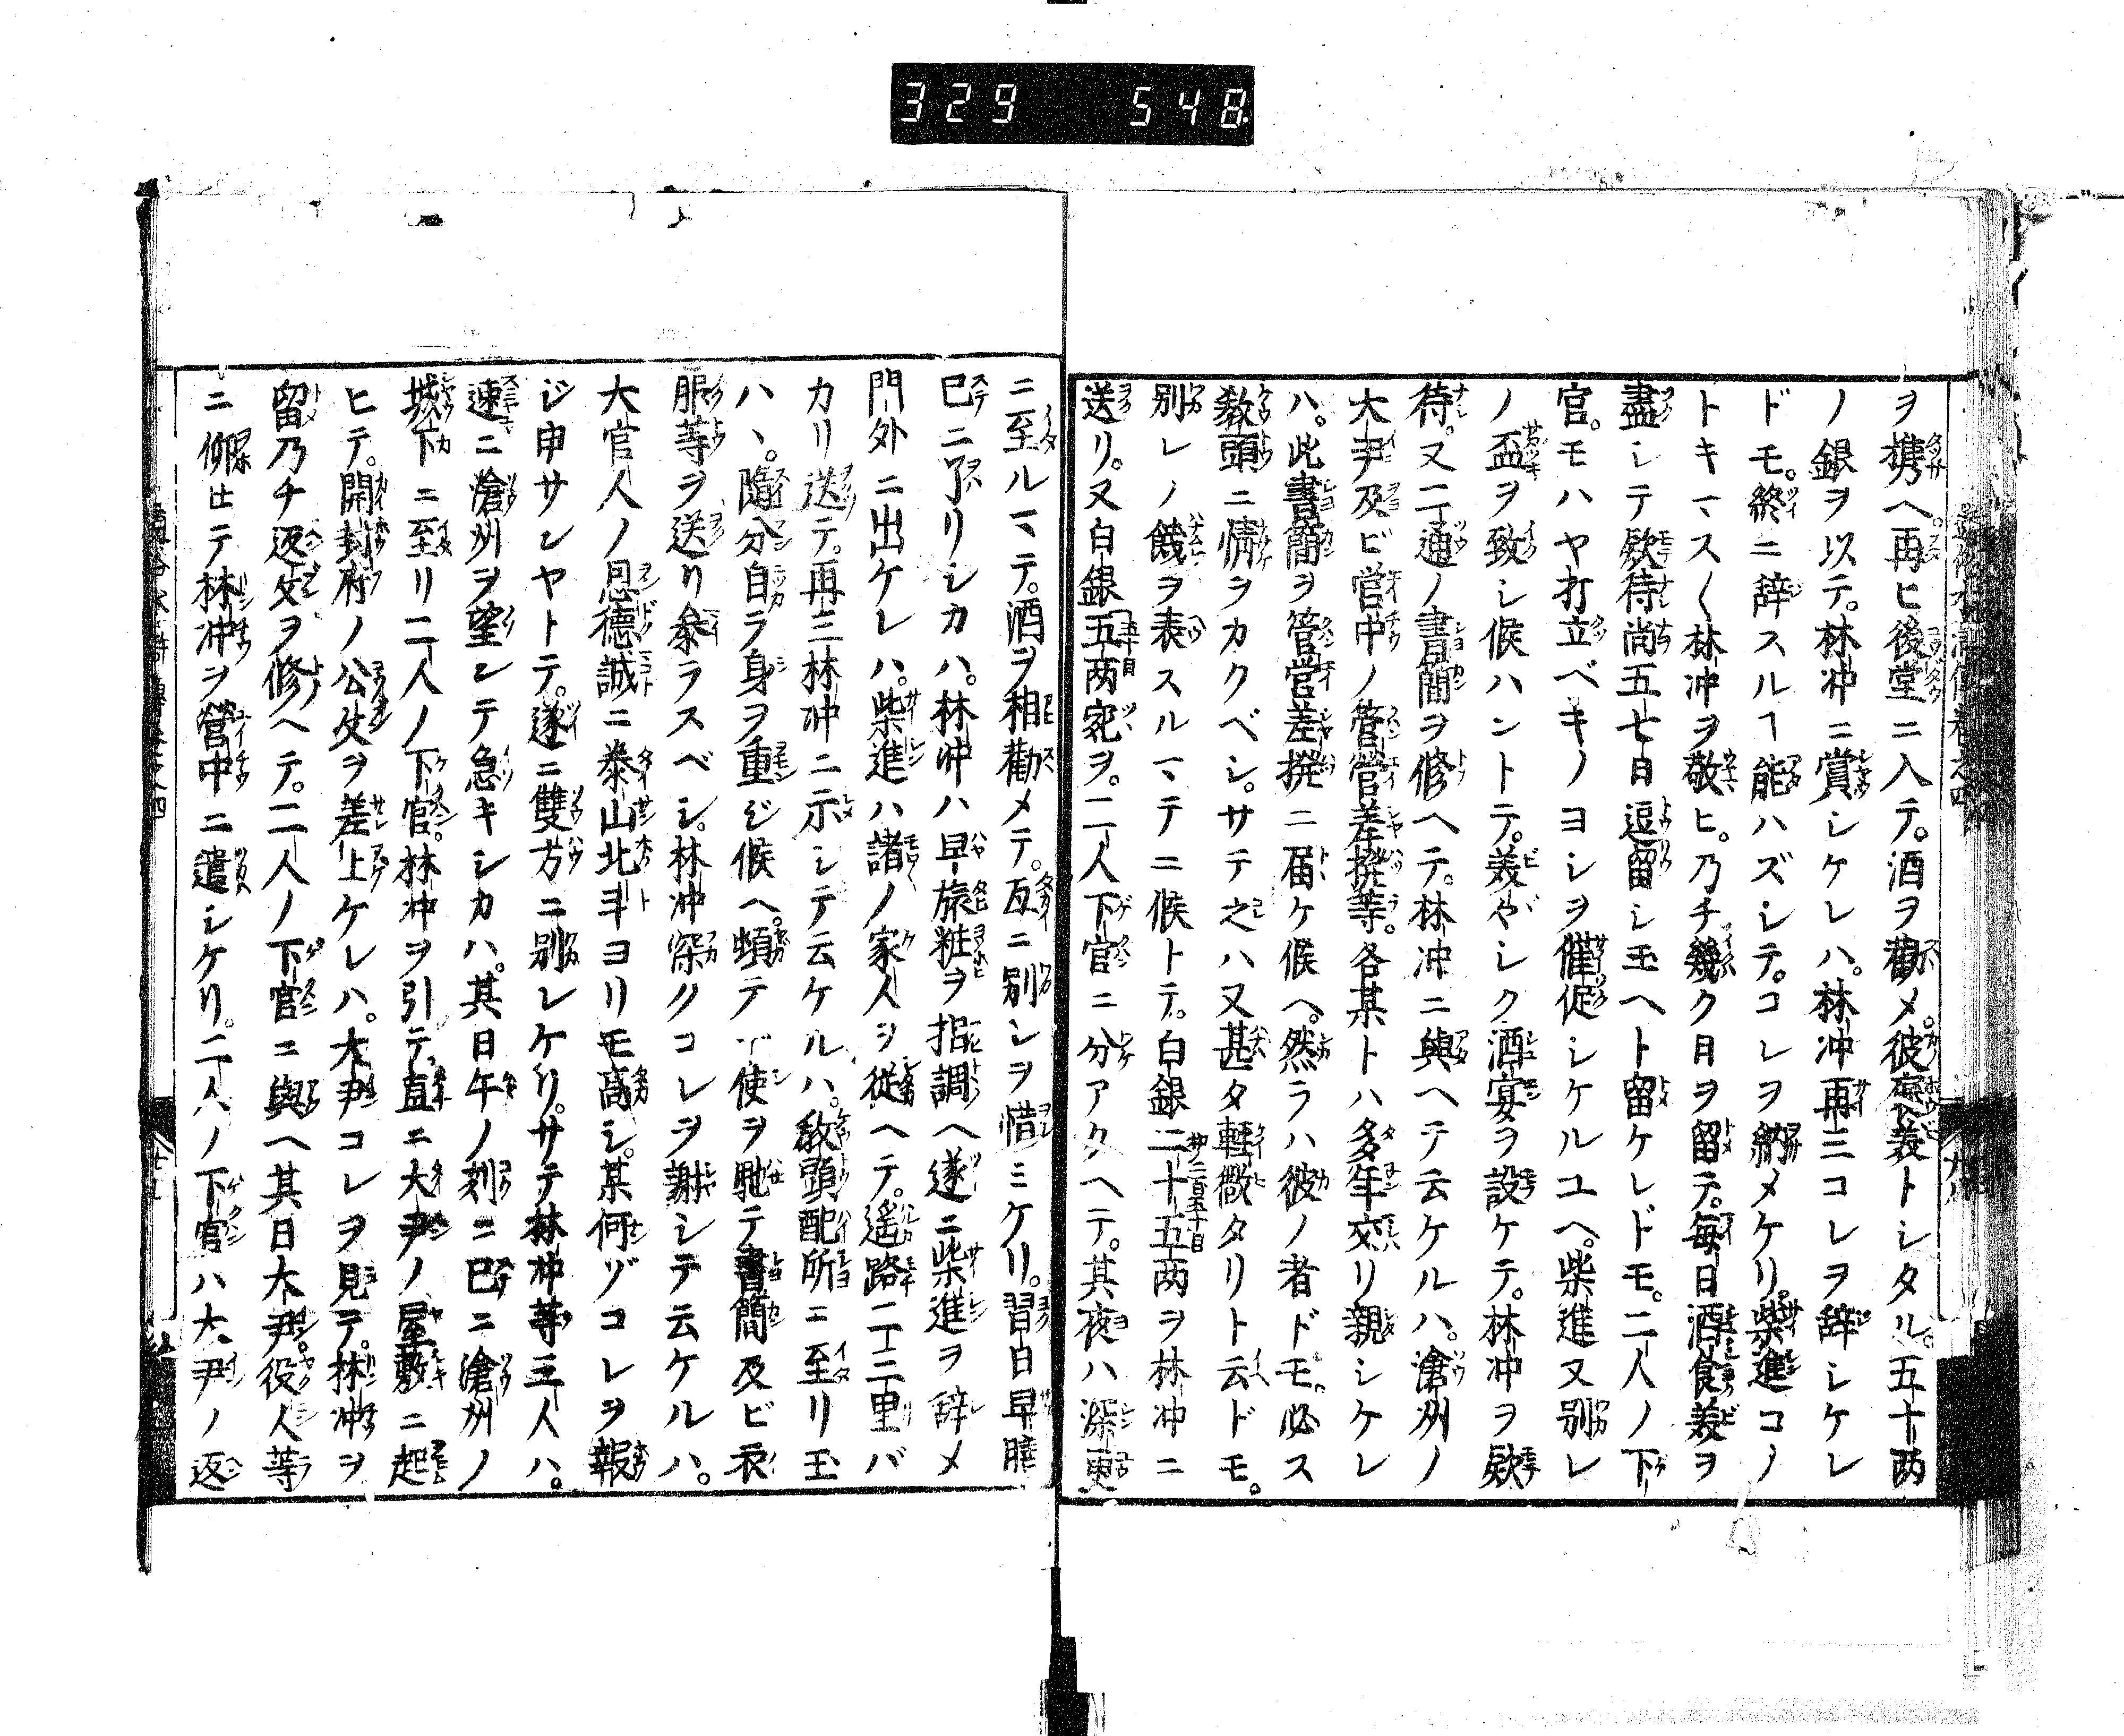 329 548
ヲ携ヘ再ヒ後堂ニ入テ。酒ヲ勸メ。彼褒美トシタル。五十两
ノ銀ヲ以テ。林冲ニ賞シケレハ。林冲再三コレヲ辞シケレ
ドモ。終ニ辞スルヿ能ハズシテ。コレヲ納メケリ。柴進コノ
トキマス〱林冲ヲ敬ヒ。乃チ幾ク日ヲ留テ。毎日酒食美ヲ
盡シテ欵待尚五七日逗留シ玉ヘト留ケレドモ。二人ノ下
官。モハヤ打立ベキノヨシヲ催促シケルユヘ。柴進又別レ
ノ盃ヲ致シ候ハントテ。美〻シク酒宴ヲ設ケテ。林冲ヲ欵
待。又二通ノ書簡ヲ修ヘテ。林冲ニ與ヘテ云ケルハ。滄州ノ
大尹及ビ営中ノ管営差撥等。各某トハ多年交リ親シケレ
ハ。此書簡ヲ管営差撥ニ届ケ候ヘ。然ラハ彼ノ者ドモ。必ス
教頭ニ情ヲカクベシ。サテ之ハ又甚タ軽微タリト云ドモ。
别レノ餞ヲ表スルマテニ候トテ。白銀二十五两ヲ林冲ニ
送リ。又白銀五两宛ヲ。二人下官ニ分アタヘテ。其夜ハ深更
ニ至ルマテ。酒ヲ相勸メテ。互ニ别レヲ惜ミケリ。翌日早曉
巳ニ了リシカハ。林冲ハ早旅粧ヲ指調ヘ遂ニ柴進ヲ辞メ
門外ニ出ケレハ。柴進ハ諸ノ家人ヲ従ヘテ。遥路二三里バ
カリ送テ。再三林冲ニ示シテ云ケルハ。教頭配所ニ至リ玉
ハヽ。隨分自ラ身ヲ重ジ候ヘ。頓テ使ヲ馳テ書簡及ビ衣
服等ヲ送リ參ラスベシ。林冲深クコレヲ謝シテ云ケルハ。
大官人ノ恩德誠ニ泰山北斗ヨリモ高シ。某何ヅコレヲ報
ジ申サンヤトテ。遂ニ雙方ニ别レケリ。サテ林冲等三人ハ。
速ニ滄州ヲ望シテ急キシカハ。其日午ノ刻ニ巳ニ滄州ノ
城下ニ至リ二人ノ下官。林冲ヲ引テ。直ニ大尹ノ屋敷ニ赴
ヒテ。開封府ノ公文ヲ差上ケレハ。大尹コレヲ見テ。林冲ヲ
留乃チ返文ヲ修ヘテ。二人ノ下官ニ與ヘ其日大尹。役人等
ニ仰セテ林冲ヲ営中ニ遣シケリ。二人ノ下官ハ大尹ノ返